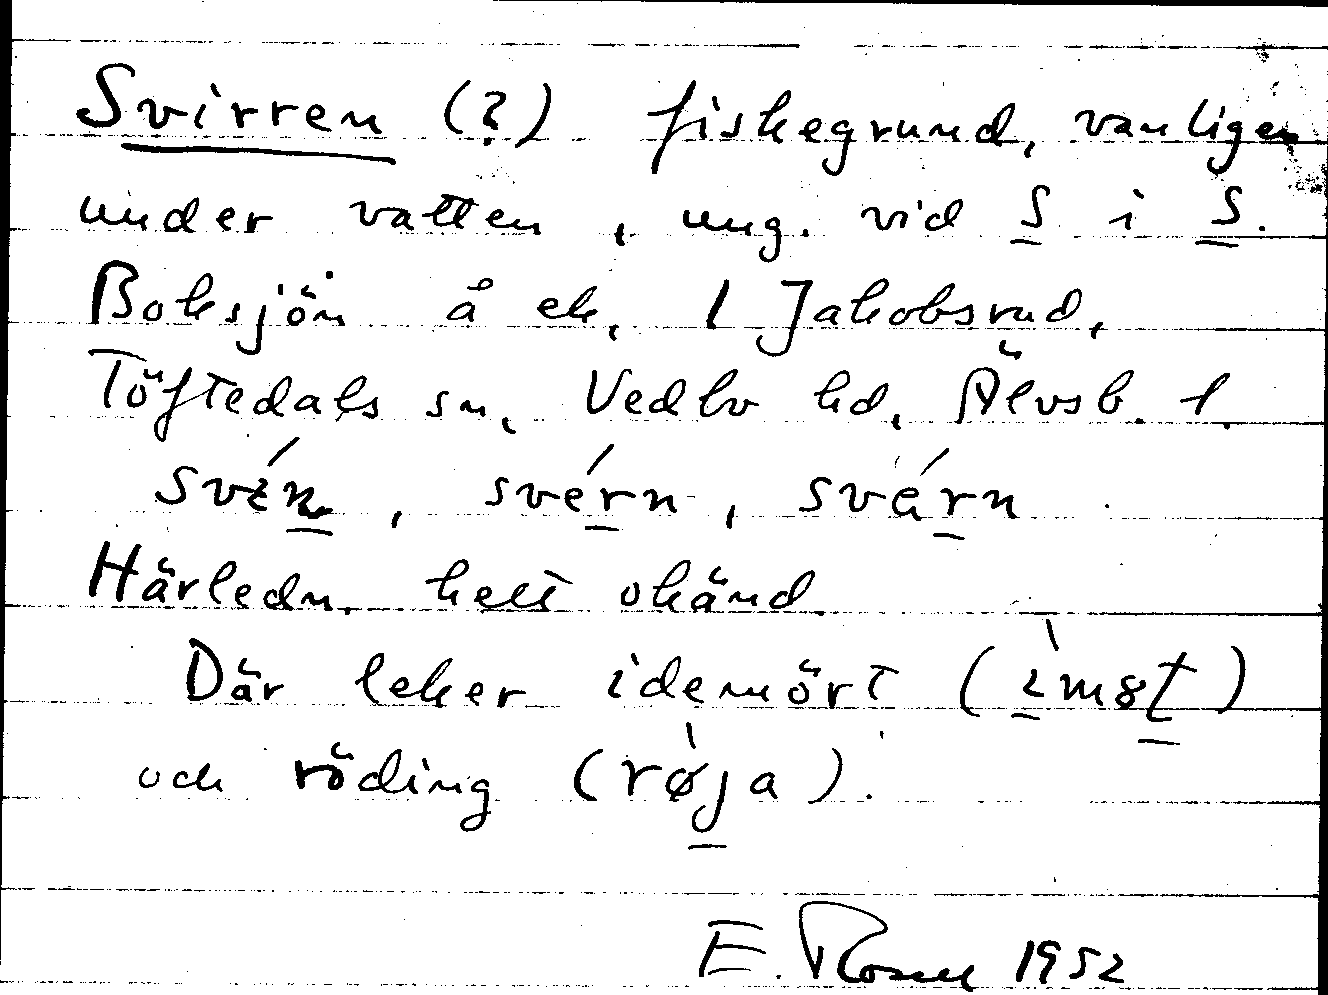 Svirren (?) fiskegrund, vanligen
under vatten, ung. vid S i S.
Boksjön å ek, 1 Jakobsrud,
Töftedals sn, Vedbo hd, Älvsb. l.
svérn, svärn
Härledn. helt okänd.
Där leker idemört
och röding (røja).
E. Rosell 1952